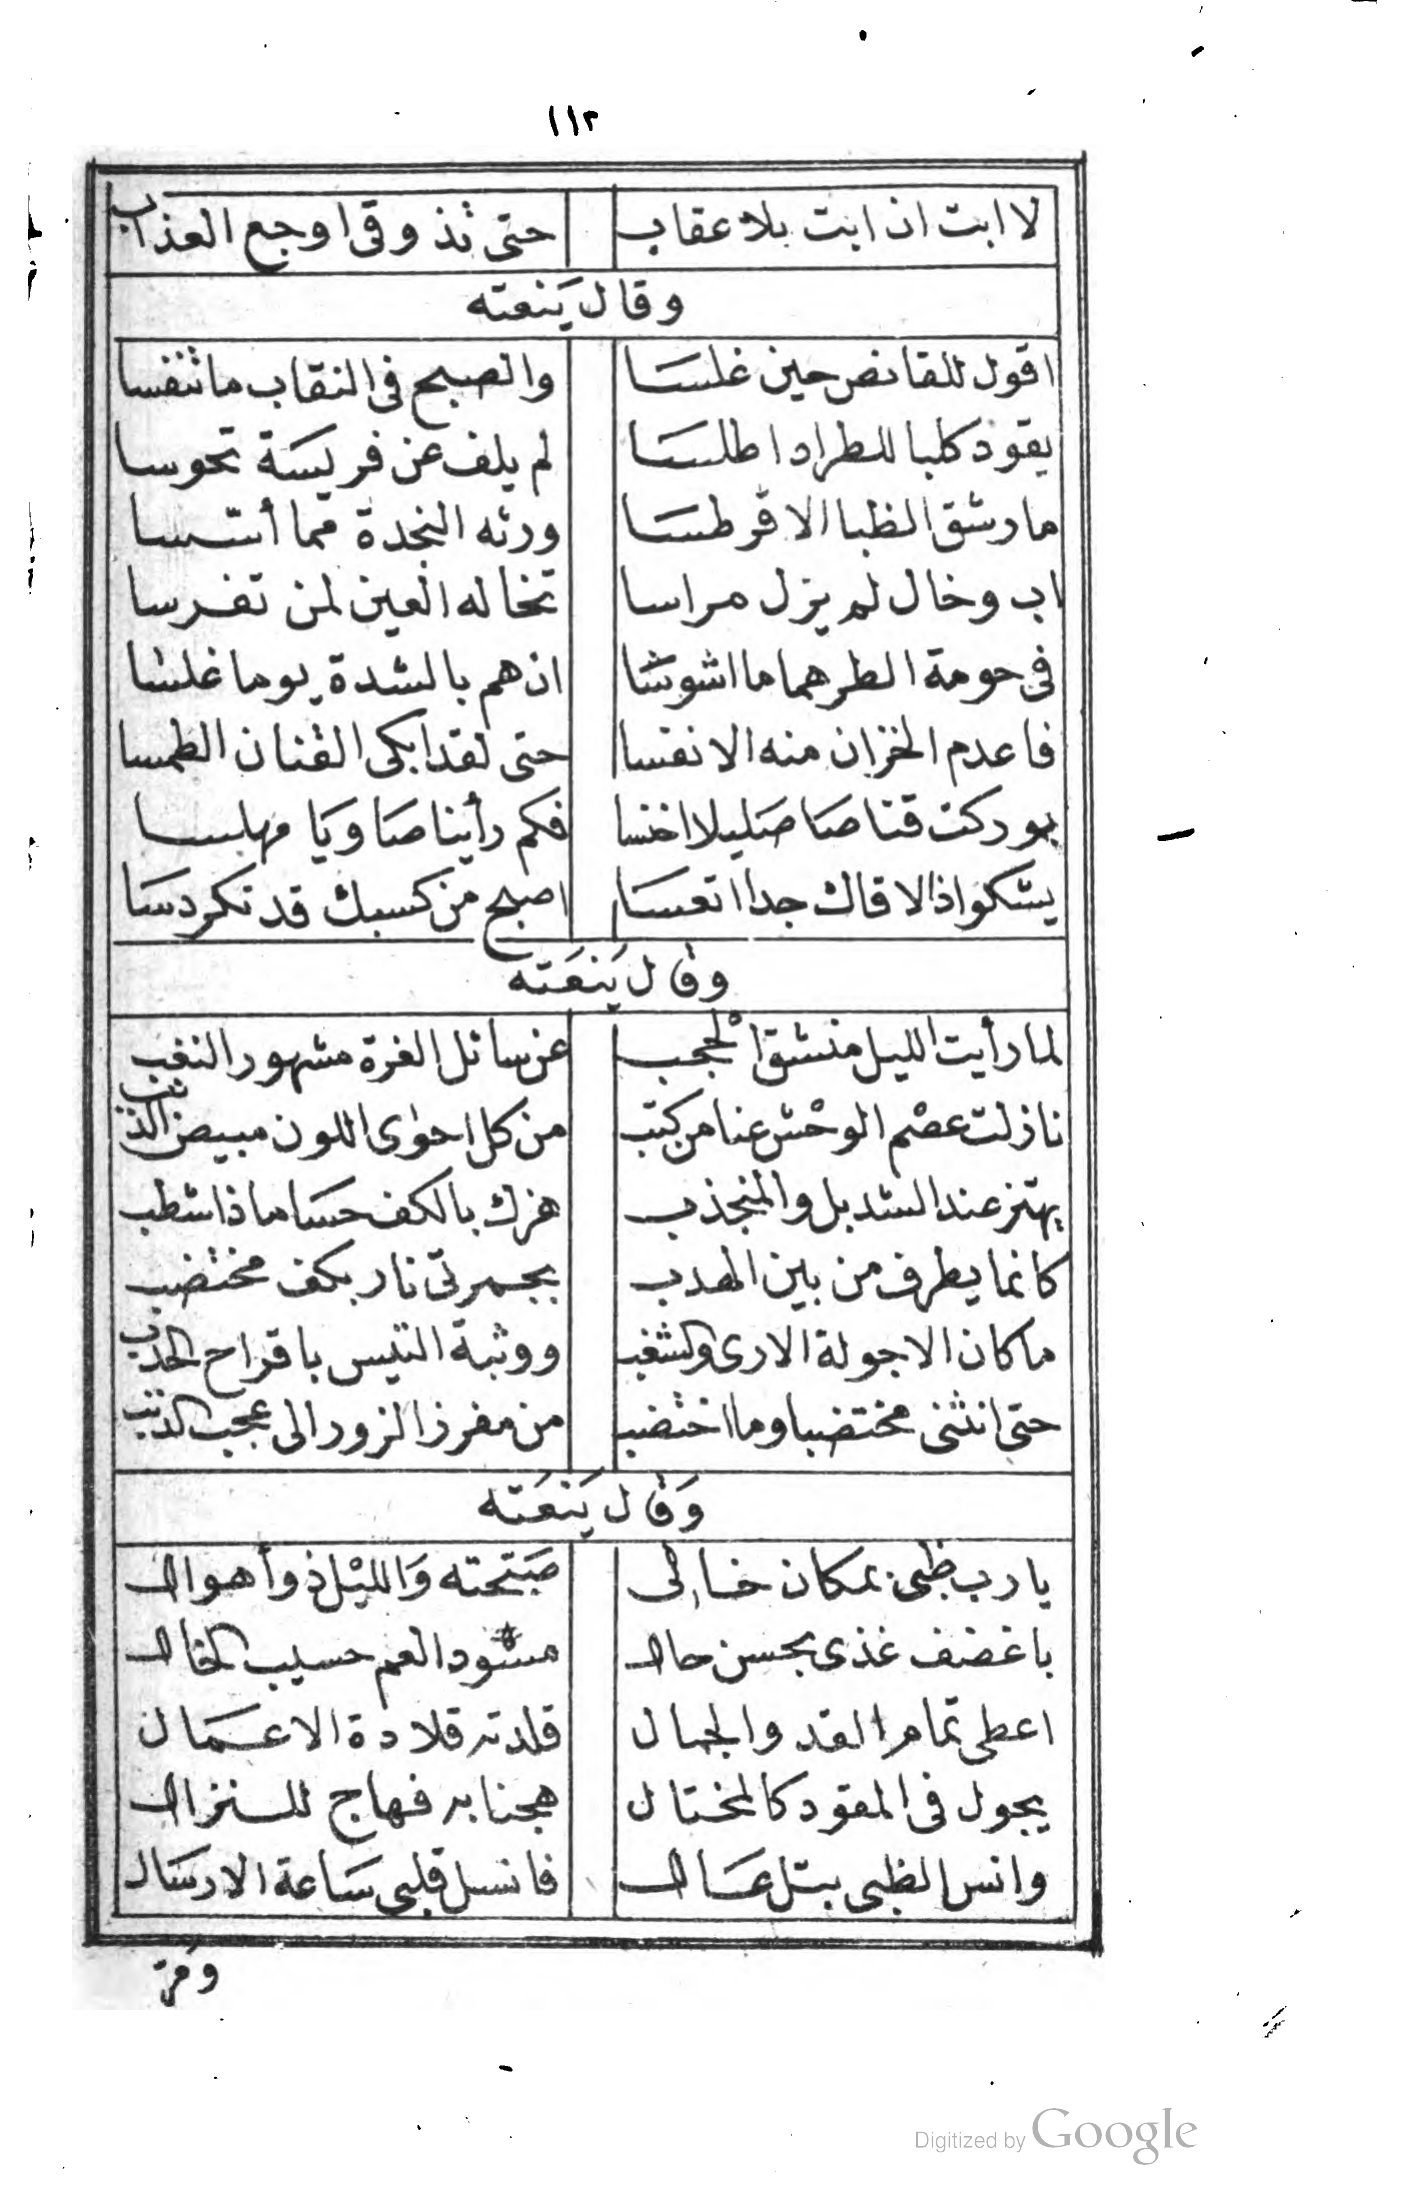 ١١٢
لا ابت ان ابت بلا عقاب حتى تذوقى اوجع العذاب
وقال ينعته
اقول للقانص حين غلسا والصبح فى النقاب ما تنفسا
يقود كلبا للطراد اطلسا لم يلف عن فريسة تحوسا
ما رشق الظبا الا قرطسا ورثه النجدة مما أسّسا
اب وخال لم يزل مراسا تخاله العين لمن تفرسا
فى حومة الطر هماما اشوشا ان هم بالشدة يوما غلسا
فاعدم الخزان منه الانفسا حتى لقد ابكى القنان الطمسا
بوركت قناصا صليلا اخنسا فكم رأينا صاويا مهلسا
يشكو اذا لاقاك جدا اتعسا اصبح من كسبك قد تكردسا
وقال ينعته
لما رأيت الليل منشق الحجب عن سائل الغرة مشهور النقب
نازلت عصم الوحش عنا من كثب من كل احوى اللون مبيض الذنب
يهتز عند الشد بل والمنجذب هزك بالكف حساما ذا شطب
كانما يطرف من بين الهدب بجمرتى نار بكف مختضب
ما كان الا جولة الارى والشغب ووثبة التيس باقراح الحدب
حتى انثنى مختضبا وما اختضب من مفرز الزور الى عجب الذنب
وقال ينعته
يا رب ظبى بمكان خالى صبّحته والليل ذو أهوال
باغضف غذى بحسن حال مسّود العم حسيب الخال
اعطى تمام القد والجمال قلدته قلادة الاعمال
يجول فى المقود كالمختال هجنا به فهاج للنزال
وانس الظبى بتل عال فانسل قلبى ساعة الارسال
ومرّ
Digitized by Google